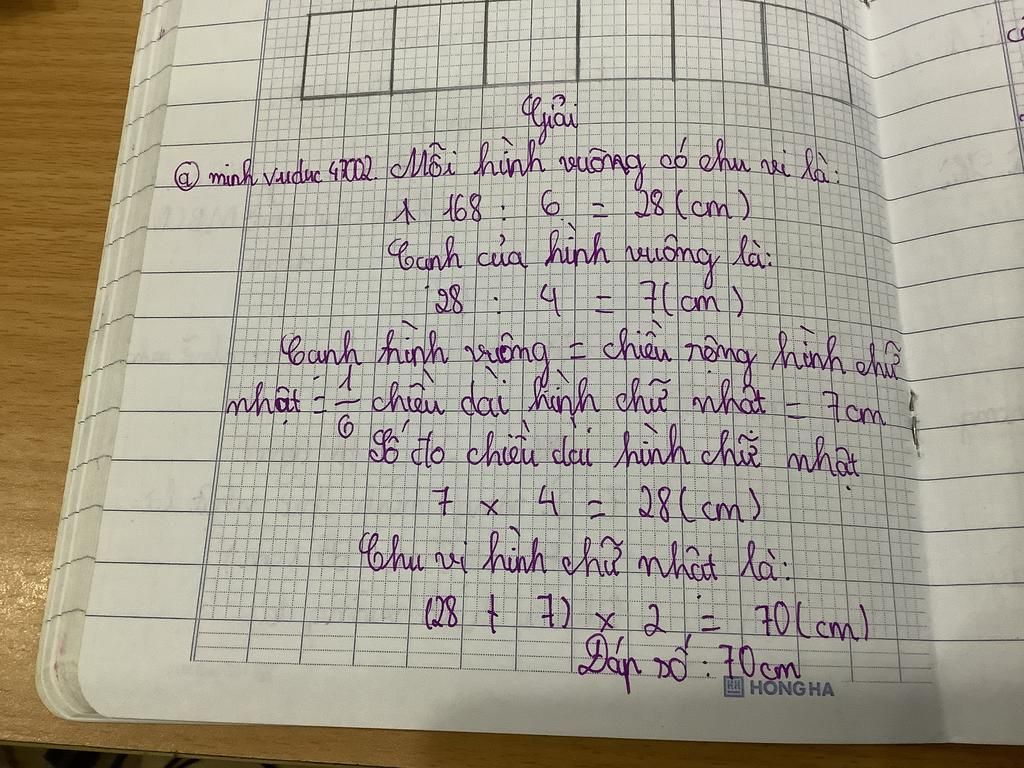 Giải
@ minh vuduc 4702 Mỗi hình vuông có chu vi là:
168 : 6 = 28 (cm)
Cạnh của hình vuông là:
28 : 4 = 7 (cm)
Cạnh hình vuông = chiều rộng hình chữ
nhật = 1/6 chiều dài hình chữ nhật = 7cm
Số đo chiều dài hình chữ nhật
7 x 4 = 28 (cm)
Chu vi hình chữ nhật là:
(28 + 7) x 2 = 70 (cm)
Đáp số: 70cm
HONG HA